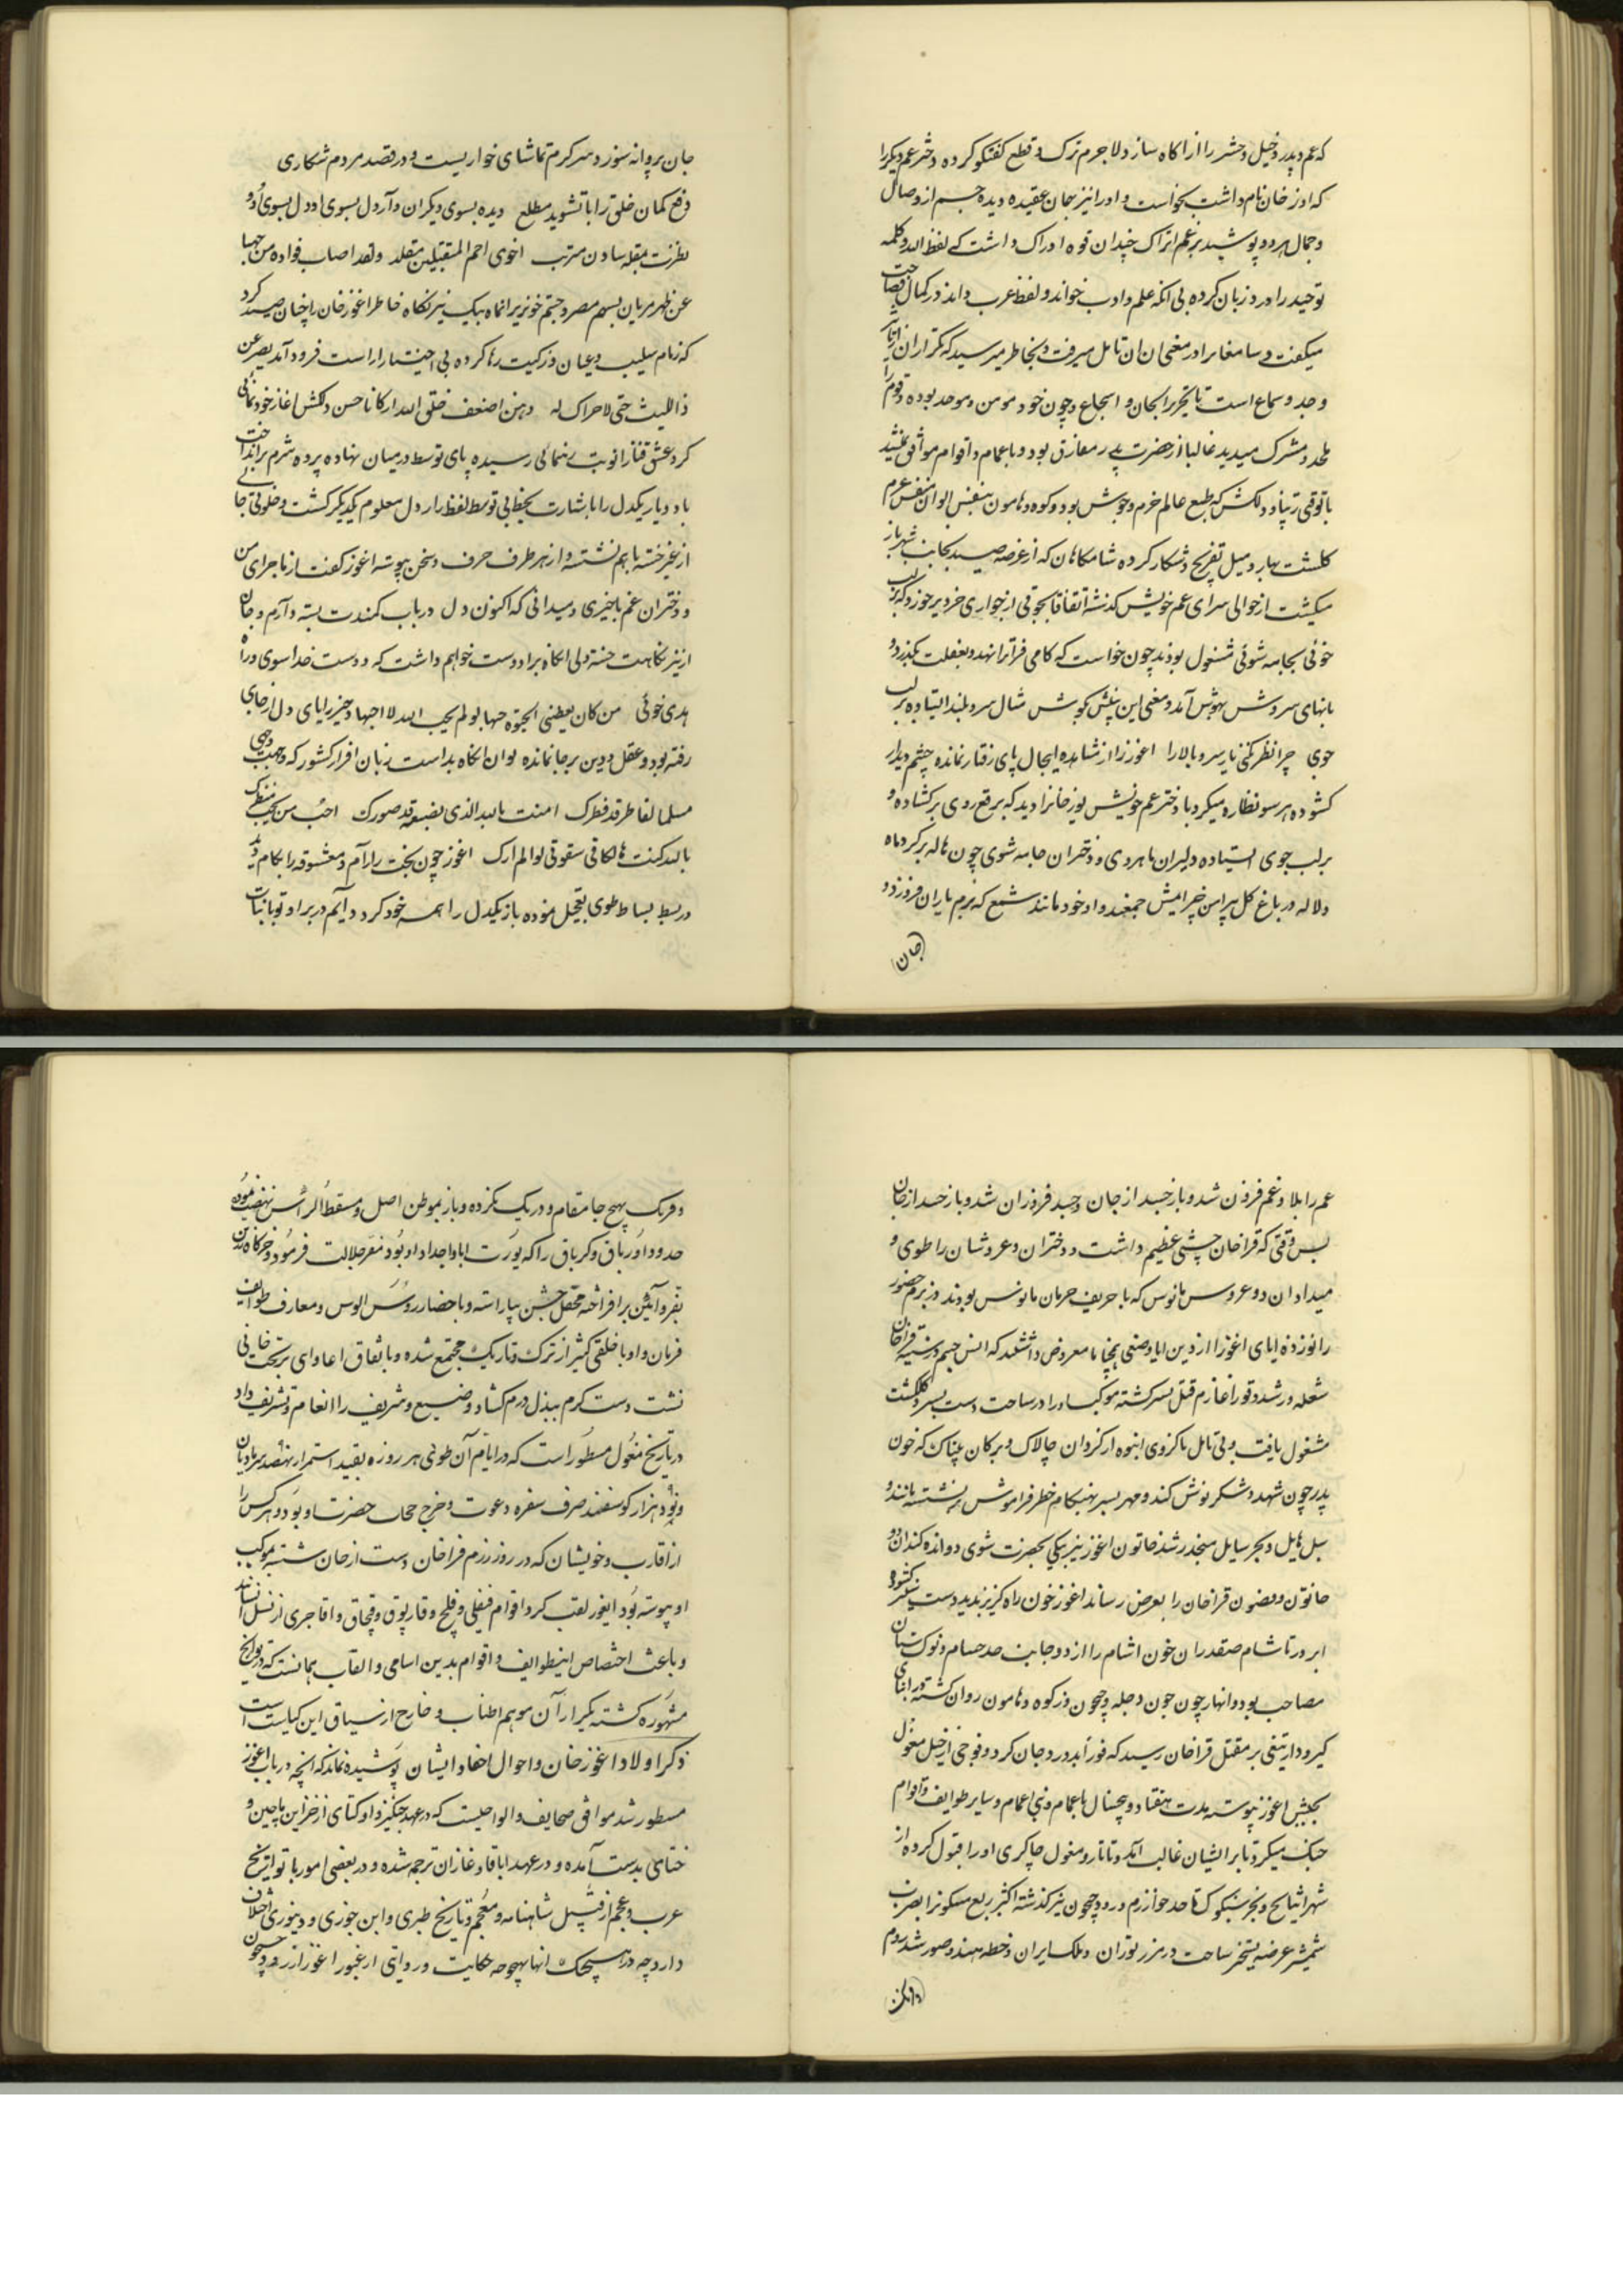 که عم و پدر و خیل و حشر را ازان آگاه سازد لاجرم ترک و قطع گفتگو کرده دختر عم دیگر را
که اوز خان نام داشت بخواست و او را نیز بجان عقیده دیده جسم از وصال
و جمال هر دو پوشید برغم اتراک چندان قوه ادراک داشت که لفظ الله و کلمه
توحید را ورد زبان کرده بی انکه علم و ادب خواند و لفظ عرب داند در کمال فصاحت
میگفت و سامعانرا در معنی ان تامل میرفت و بخاطر میرسید که تکرار ان از
وجد و سماع است یا تحریر الحان و اسجاع و چون خود مومن و موحد بوده و قوم را
ملحد و مشرک میدید غالبا از حضرت پدر مفارق بود و با عمام و اقوام موافق نمیشد
تا وقتی که طبع عالم خرم و خوش بود و کوه و هامون
گلگشت بهار و میل تفریح و شکار کرده شامگاهان که از عرصه صید بجانب شهر باز
میگشت از حوالی سرای عم خویش گذشته اتفاقا بجوقی از جواری خرد
خوئی بجامه شوئی مشغول بودند چون خواست که گامی فراتر نهد و بغفلت بگذرد
بانهای سروش بهوش آمد و معنی این بیتش گوش مثال سرو بلند ایستاده بر لب
جوی چرا نظر نکنی یار سرو بالا را اغوز را از مشاهده اینحال پای رفتار نمانده چشم دیدار
گشوده هر سو نظاره میکرد با دختر عم خویش یوز خانرا دید که برقع روی بر گشاده و
بر لب جوی ایستاده دلبران ماهروی و دختران جامه شوی چون هاله بر گرد ماه
و لاله در باغ گل پیرامن خیرامیش جمعند و او خود مانند شمع که بزم یاران فروزد و
جان
جان پروانه سوزد سرگرم تماشای خواریست و در قصد مردم شکاری
دفع گمان خلق را با تشوید مطلع دیده بسوی دیگران دارم و دل بسوی او
نظرت بمقله شادن متربب احوی احم المقلتین مقلد ولقد اصاب فواده من حبها
عن ظهر مرنان بسهم مصرد چشم خونریز انماه بیک تیر نگاه خاطر اغوز خان را چنان صید کرد
که زمام شکیب و عنان فرکیت رها کرده بی اختیار از است فرود آمد یصرعن
ذا اللب حتی لا حراک له وهن اضعف خلق الله ارکانا حسن دلکش اغاز خودنمائی
کرد عشق فتانرا نوبت رهنمائی رسیده پای توسط در میان نهاده پرده شرم برانداخت
تا دو یار یکدل را باشارت لحظ بی توسط لفظ راز دل معلوم یکدیگر گشت و خلوتی بی
از غیر جسته باهم نشسته و از هر طرف حرف و سخن پیوسته اغوز گفت از ماجرای من
و دختران عم باخبری و میدانی که اکنون دل در باب کمندت بسته دارم و جان
از تیر نگاهت خسته ولی انگاه ترا دوست خواهم داشت که دوست خدا سوی و راه
هدی خوئی من کان یعطنی الحیوة حبها لو لم یحب الله لا احبها دختر را پای دل از جای
رفته بود و عقل و دین بر جا نمانده لوان انگاه بدراست زبان اقرار گشود که وجهت وجهی
مسلما لفاطر قد فطرک امنت بالله الذی بصنعه قد صورک احب من یحب
بالله کنت هالکا فی سقوتی لو لم ارک اغوز چون بخت را رام و معشوقه را بکام دید
در بسط بساط طوی تعجیل نموده باز یکدل را همسر خود کرد دایم در بر او تو با نبات
عم را بلا و غم فزون شد و باز حسد از جان و جسد فروزان شد و باز حسد از جان
پس وقتی که قراخان جشنی عظیم داشت و دختران و عروسان را طوی
میداد ان دو عروس مانوس که با حریف حرمان مانوس بودند در بزم حضور
را نوزده ابای اغوز را از دین ابا و صنعی معروض داشتند که اتش خشم و ستیز قراخان
شعله ور شد و فورا عازم قتل پسر گشته موکب او را در ساحت دشت بسیر و گلگشت
مشغول یافت و بی تامل با گروهی انبوه از گردان چالاک و ترکان بیباک که خون
پدر چون شهد و شکر نوش کنند و مهر پسر بهنگام خطر فراموش بر نشسته مانند
سیل هایل و بحر سایل منحدر شد خاتون اغوز نیز پیکی بحضرت شوی دوانده
خاتون و مضمون قراخان را بعرض رساند اغوز چون راه گریز ندید دست بستیز گشود
ابرو تا شام صفدران خون اشام را از دو جانب حد حسام و نوک سنان
مصاحب بود و انهار چون خون دجله و جیحون در کوه و هامون روان گشته در اثنای
گیر و دار تیغی بر مقتل قراخان رسید که فورا بدرود جان کرد و فوجی از خیل مغول
بجیش اغوز پیوسته مدت هفتاد و پنجسال با عمام و بنی اعمام و سایر طوایف و اقوام
جنگ میکرد تا بر ایشان غالب آمد و تاتار و مغول چاکری او را قبول کرده از
شهر اتیالح و بحر سنکوک تا حد خوارزم و رود جیحون نیز گذشته اکثر ربع مسکونرا بضرب
شمشیر عرضه تسخیر ساخت در مرز توران و ملک ایران و خطه هند و صور شد روم
و فرنک
و فرنک بهیچ جا مقام و درنک نکرده و باز بموطن اصل و مسقط الرأس نهضت نموده
حدود اورتاق و کرتاق را که یورت ابا و اجداد او بود مقر جلالت فرمود و خرگاه زرین
بفر و آیین برافراخته محفل جشن بیاراسته و باحضار روس الوس و معارف طوایف
فرمان داد با خلقی کثیر از ترک و تاریک مجتمع شده و باتفاق اعادای بر تخت خانی
نشت دست کرم ببذل درم گشاد وضیع و شریف را انعام و تشریف داد
در تاریخ مغول مسطور است که در ایام آن طوی هر روزه بقید استمرار نهصد سر مادیان
و نود هزار گوسفند صرف سفره دعوت و خرج حجاب حضرت او بود و هر کس را
از اقارب و خویشان که در روز رزم قراخان دست از جان شسته بموکب
او پیوسته بود ایغور لقب کرد اقوام قنقلی و قلج و قارلوق و قبچاق و اقاجری از نسل انانند
و باعث اختصاص اینطوایف و اقوام بدین اسامی و القاب همانست که در تواریخ
مشهوره گشته تکرار آن موهم اطناب و خارج از سیاق این کتابست
ذکر اولاد اغوز خان و احوال احفاد ایشان پوشیده نماند که انچه در باب اغوز
مسطور شد موافق صحایف و الواحیست که در عهد چنگیز و اوکتای از خزاین ماچین و
ختای بدست آمده و در عهد اباقا و غازان ترجمه شده و در بعضی امور با تواریخ
عرب و عجم از قبیل شاهنامه و معجم و تاریخ طبری و ابن جوزی و دینوری اختلاف
دارد چه در هیچیک انها بهیچوجه حکایت و روایتی از عبور اغوز از رود جیحون